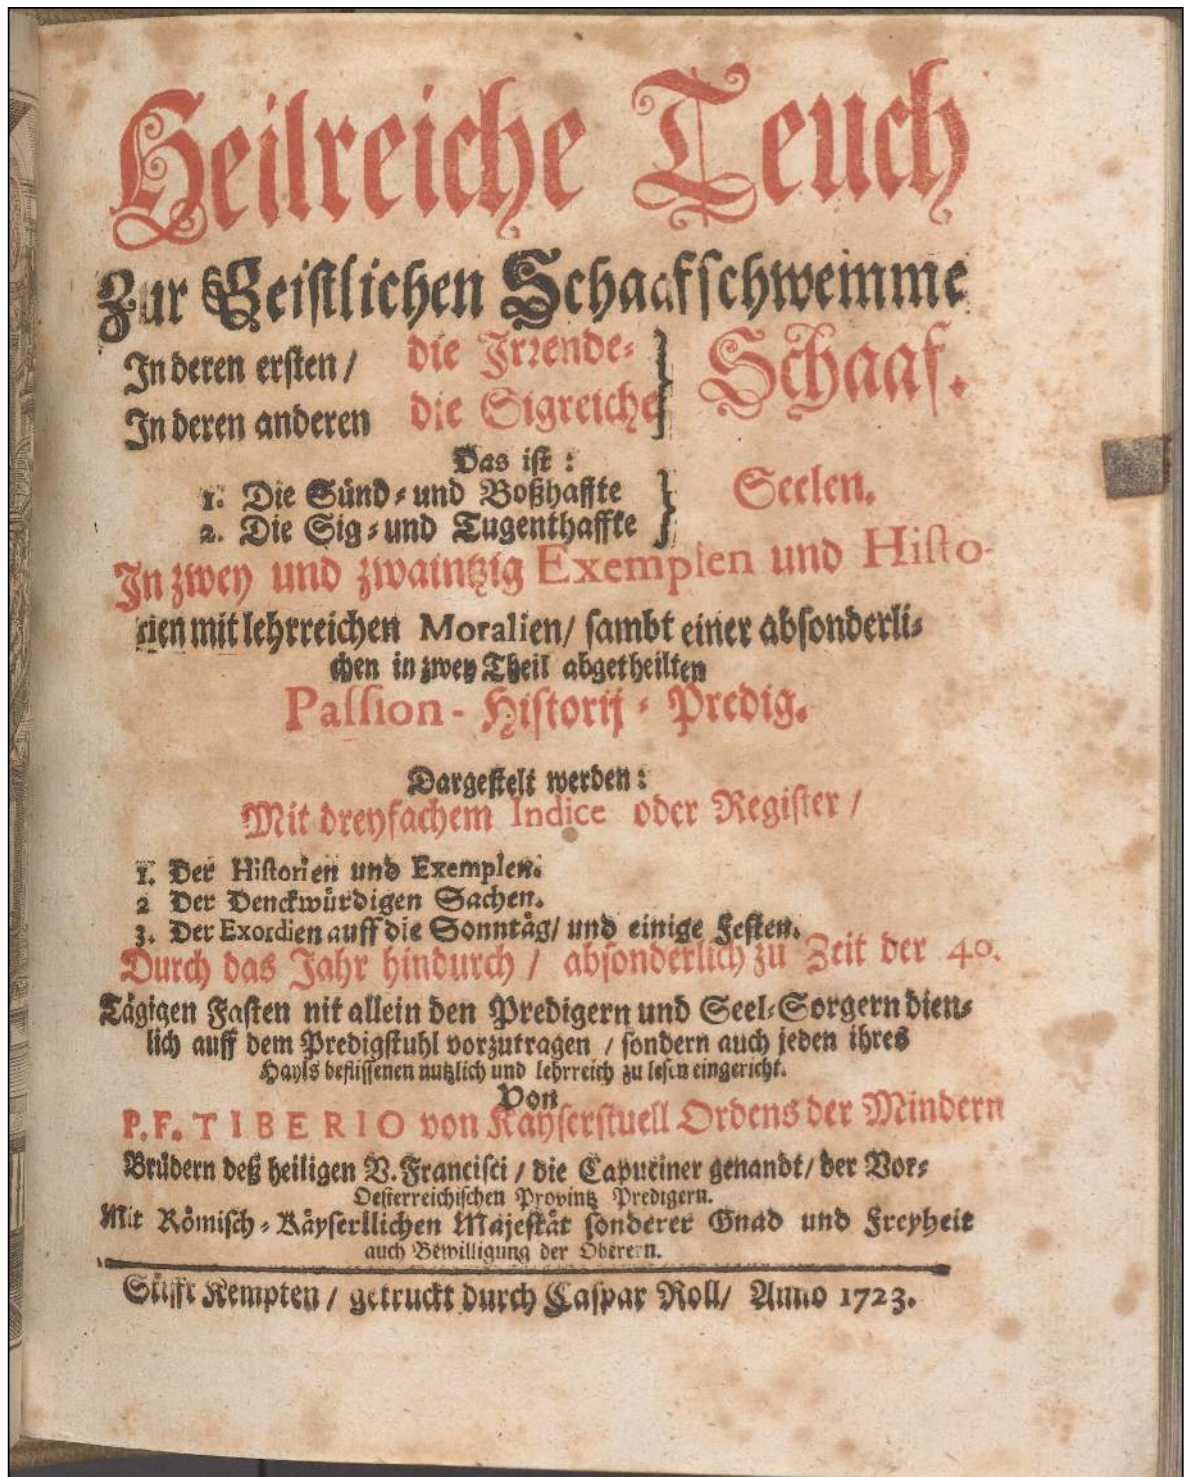 Heilreiche Teuch
Zur Geistlichen Schaafschwemme
In deren ersten / die Irrende- } Schaaf.
In deren anderen die Sigreiche
Das ist:
1. Die Sünd- und Boßhaffte } Seelen.
2. Die Sig- und Tugenthaffte
In zwey und zwaintzig Exemplen und Histo-
rien mit lehrreichen Moralien/ sambt einer absonderli-
chen in zwey Theil abgetheilten
Passion- Historij- Predig.
Dargestelt werden:
Mit dreyfachem Indice oder Register /
1. Der Historien und Exemplen.
2 Der Denckwürdigen Sachen.
3. Der Exordien auff die Sonntåg/ und einige Festen.
Durch das Jahr hindurch / absonderlich zu Zeit der 40.
Tägigen Fasten nit allein den Predigern und Seel-Sorgern dien-
lich auff dem Predigstuhl vorzutragen / sondern auch jeden ihres
Hayls beflissenen nutzlich und lehrreich zu lesen eingericht.
Von
P. F. TIBERIO von Kayserstuell Ordens der Mindern
Brüdern deß heiligen V. Francisci / die Capuciner genandt/ der Vor-
Oesterreichischen Provintz Predigern.
Mit Römisch-Käyserllichen Majestät sonderer Gnad und Freyheit
auch Bewilligung der Oberern.
Stifft Kempten / getruckt durch Caspar Roll/ Anno 1723.